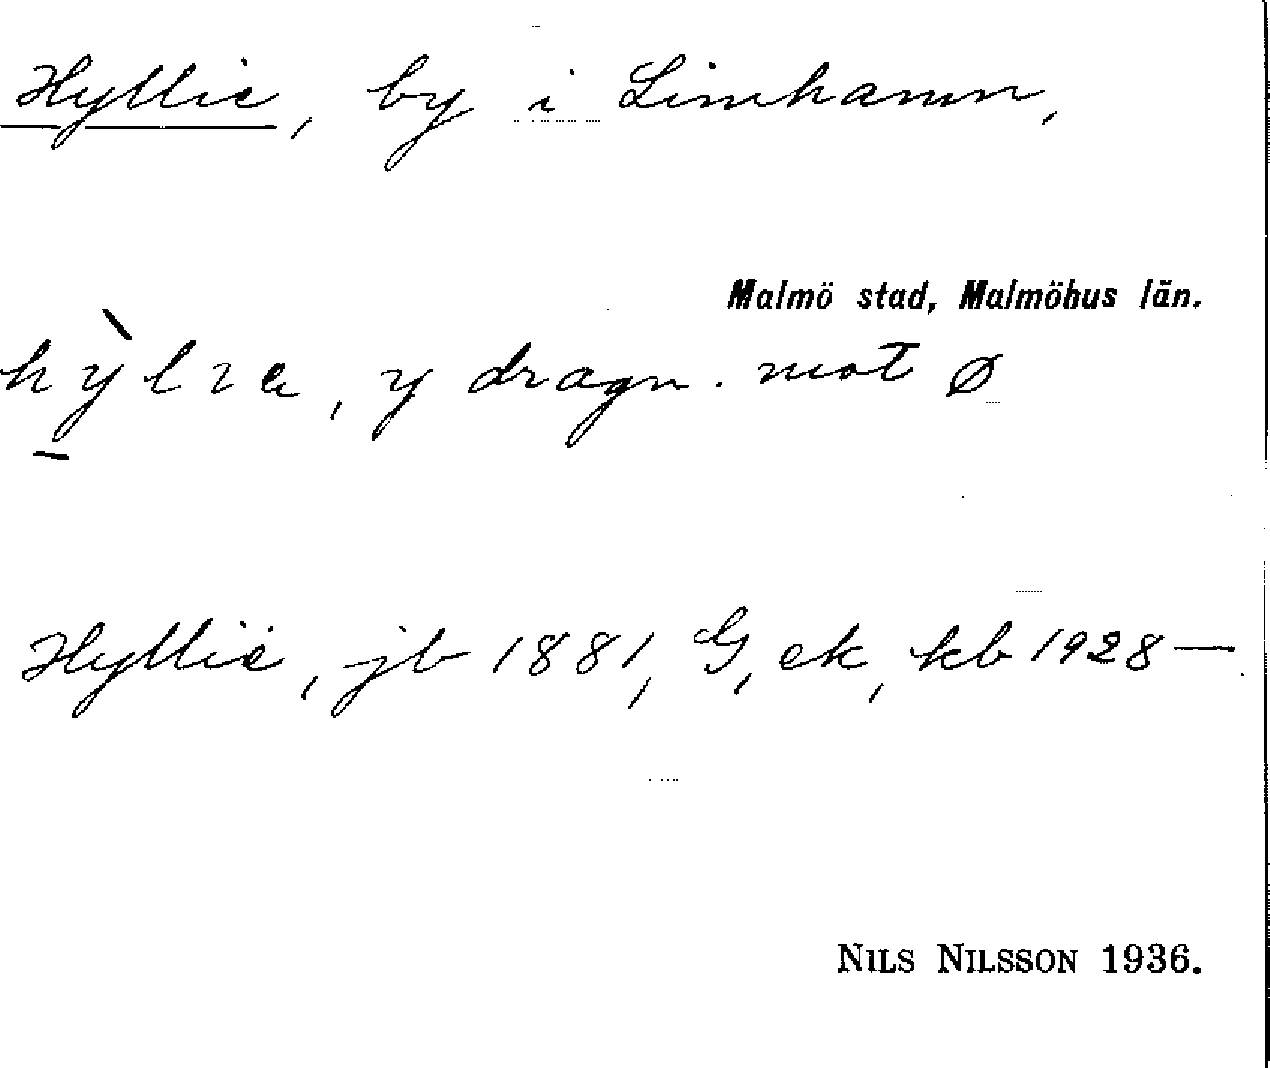 Hyllie, by i Limhamn,
Malmö stad, Malmöhus län.
hỳlıɐ, y dragn. mot ø
Hyllie, jb 1881, G, ek, kb 1928 —
NILS NILSSON 1936.